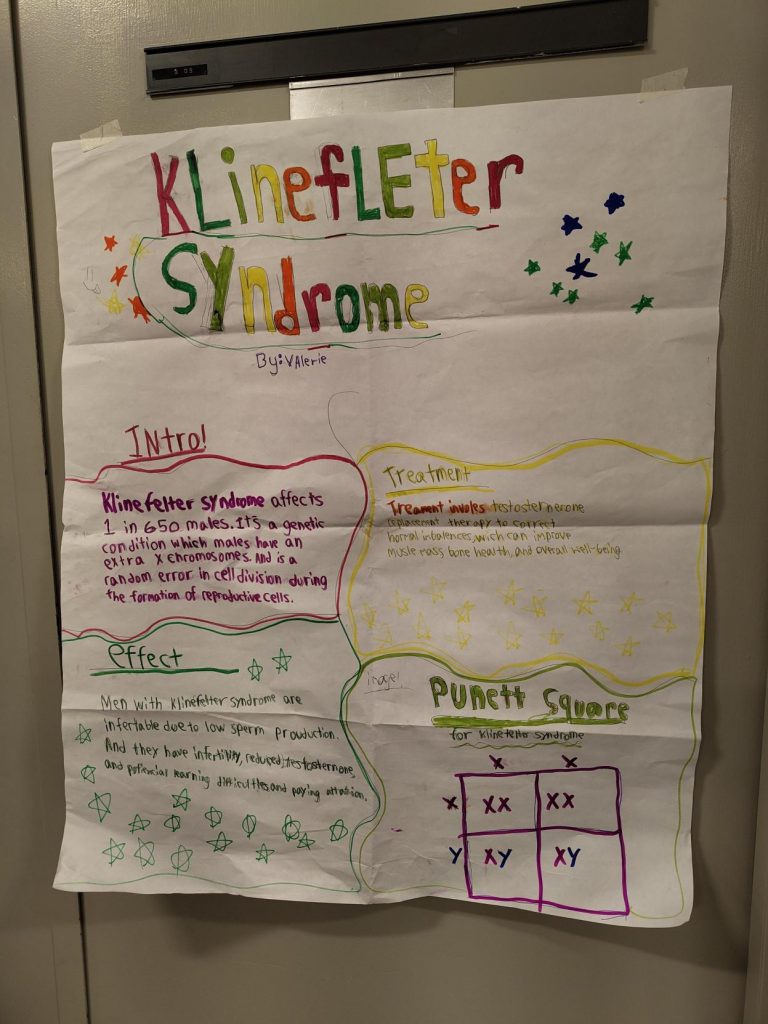 KLinefLEter
Syndrome
By: VAlerie
INtro!
Klinefelter syndrome affects
1 in 650 males. It's a genetic
condition which males have an
extra x chromosomes. And is a
random error in cell division during
the formation of reproductive cells.
Treatment
Treament involes testosternerone
replacement therapy to correct
hormal inbalences, wich can improve
musle mass, bone health, and overall well-being.
effect
Men with klinefelter syndrome are
infertable due to low sperm prouduction.
And they have infertility, reduced, testosternone,
and potiencial learning difficultles and paying attention.
image!
Punett Square
for klinefelter syndrome
x x
x XX XX
y XY XY